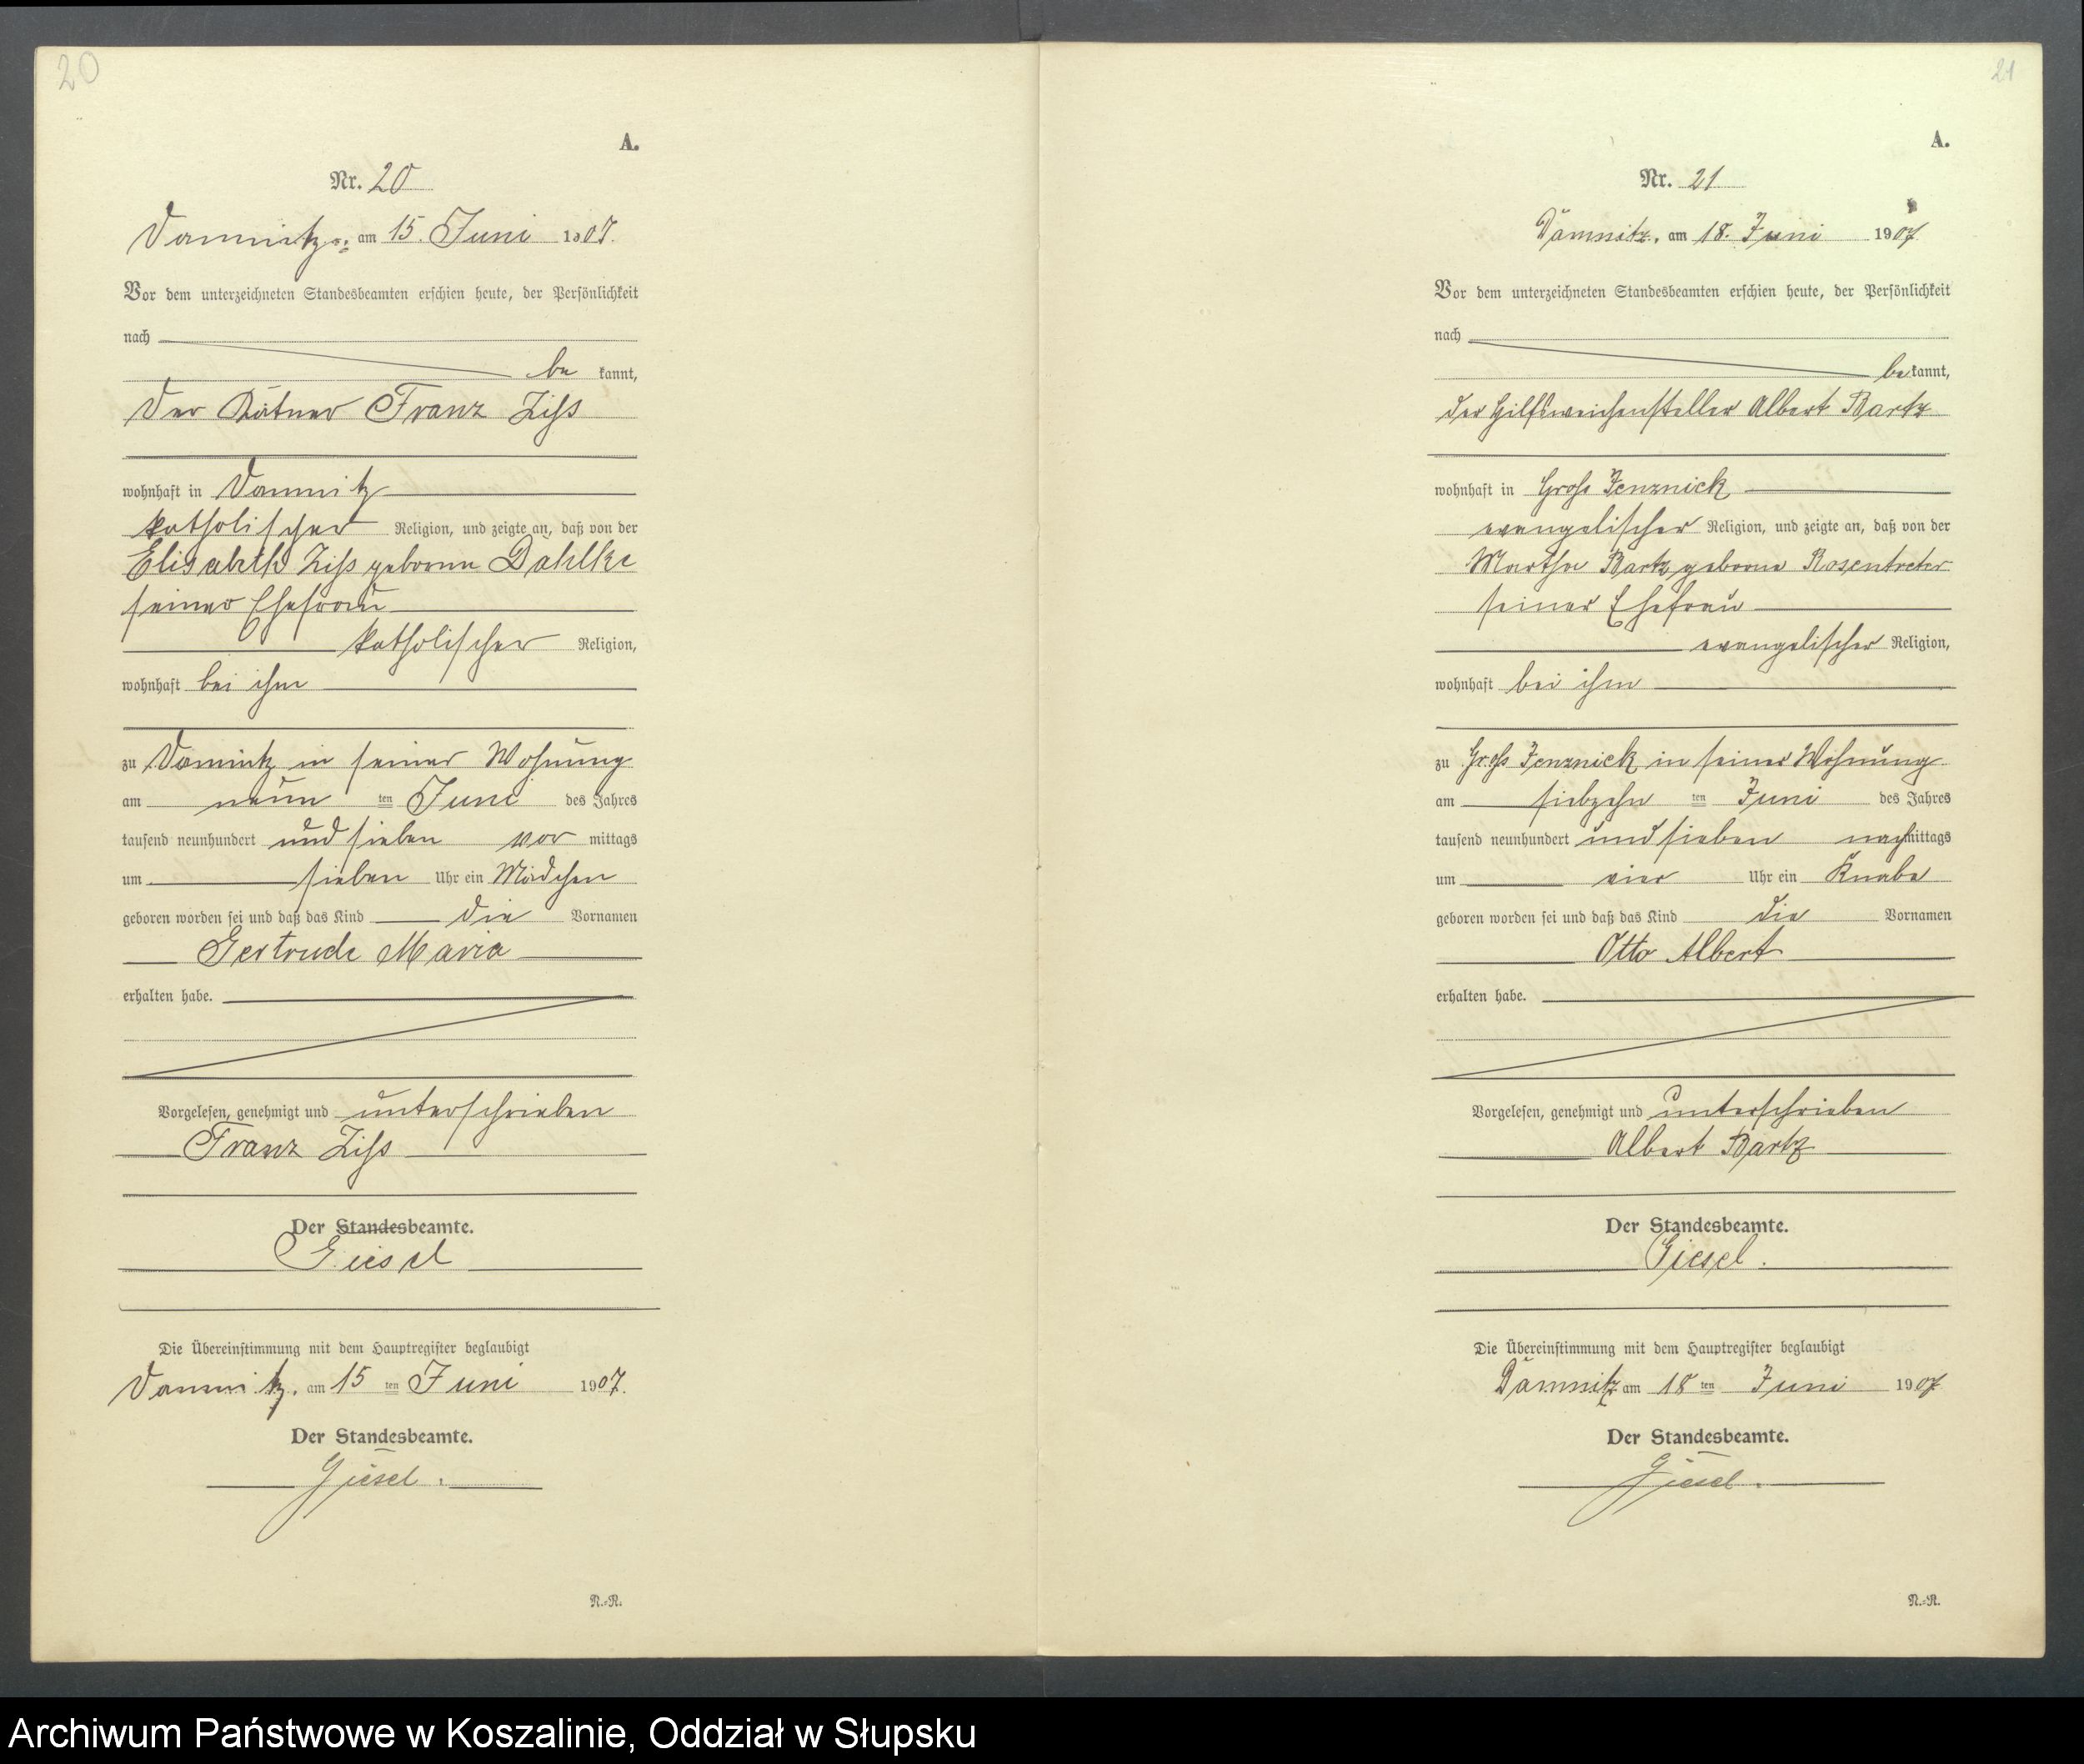 20
A.
Nr. 20
Damnitz, am 15. Juni 1907.
Vor dem unterzeichneten Standesbeamten erschien heute, der Persönlichkeit
nach
be kannt,
der Kätner Franz Ziss
wohnhaft in Damnitz
katholischer Religion, und zeigte an, daß von der
Elisabeth Ziss geborne Dahlke
seiner Ehefrau
katholischer Religion,
wohnhaft bei ihm
zu Damnitz in seiner Wohnung
am neun ten Juni des Jahres
tausend neunhundert und sieben vor mittags
um sieben Uhr ein Mädchen
geboren worden sei und daß das Kind die Vornamen
Gertrude Maria
erhalten habe.
Vorgelesen, genehmigt und unterschrieben
Franz Ziss
Der Standesbeamte.
Giesel
Die Übereinstimmung mit dem Hauptregister beglaubigt
Damnitz, am 15 ten Juni 1907.
Der Standesbeamte.
Giesel.
N.-R.
21
A.
Nr. 21
Damnitz, am 18. Juni 1907
Vor dem unterzeichneten Standesbeamten erschien heute, der Persönlichkeit
nach
be kannt,
der Hilfsweichensteller Albert Bartz
wohnhaft in Gross Jenznick
evangelischer Religion, und zeigte an, daß von der
Martha Bartz geborne Rosentreter
seiner Ehefrau
evangelischer Religion,
wohnhaft bei ihm
zu Gross Jenznick in seiner Wohnung
am siebzehn ten Juni des Jahres
tausend neunhundert und sieben nach mittags
um vier Uhr ein Knabe
geboren worden sei und daß das Kind die Vornamen
Otto Albert
erhalten habe.
Vorgelesen, genehmigt und unterschrieben
Albert Bartz
Der Standesbeamte.
Giesel.
Die Übereinstimmung mit dem Hauptregister beglaubigt
Damnitz am 18 ten Juni 1907
Der Standesbeamte.
Giesel.
N.-R.
Archiwum Państwowe w Koszalinie, Oddział w Słupsku